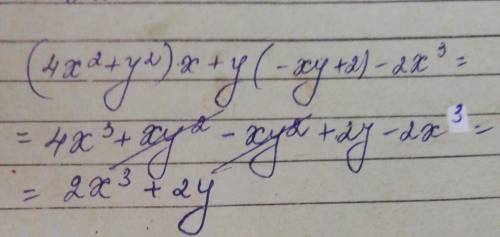 (4x²+y²)·x+y(-xy+2)-2x³=
=4x³+xy²-xy²+2y-2x³=
=2x³+2y